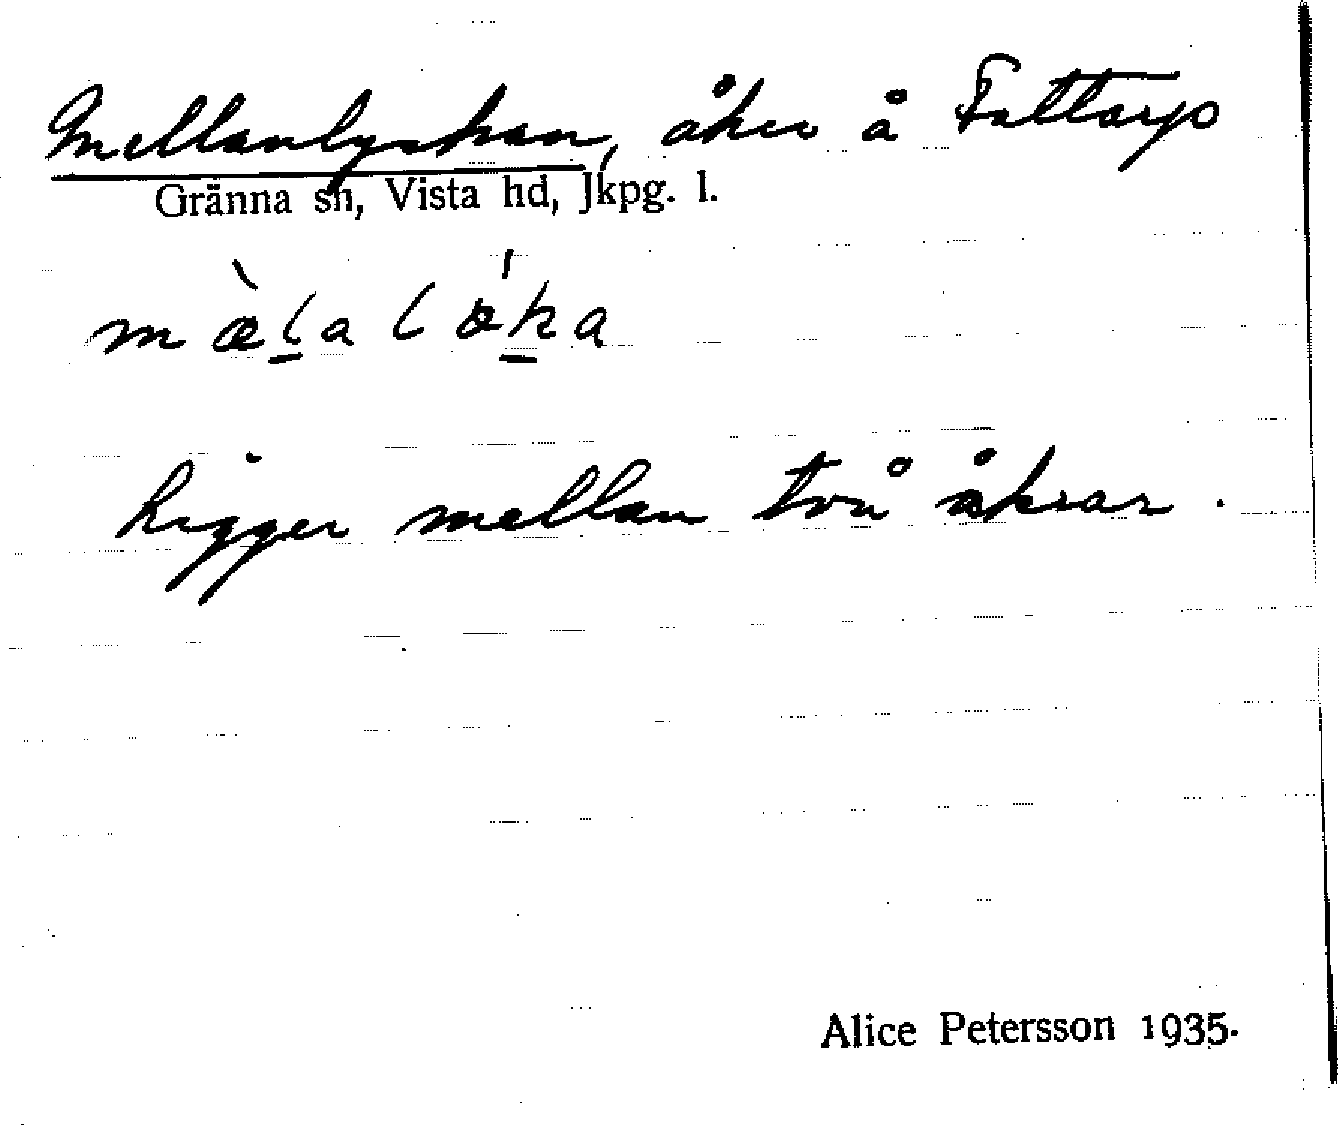 Mellanlyckan, åker å Fattarp
Gränna sn, Vista hd, Jkpg. l.
mæ̀l̲a lǿk̲a
Ligger mellan två åkrar.
Alice Petersson 1935.